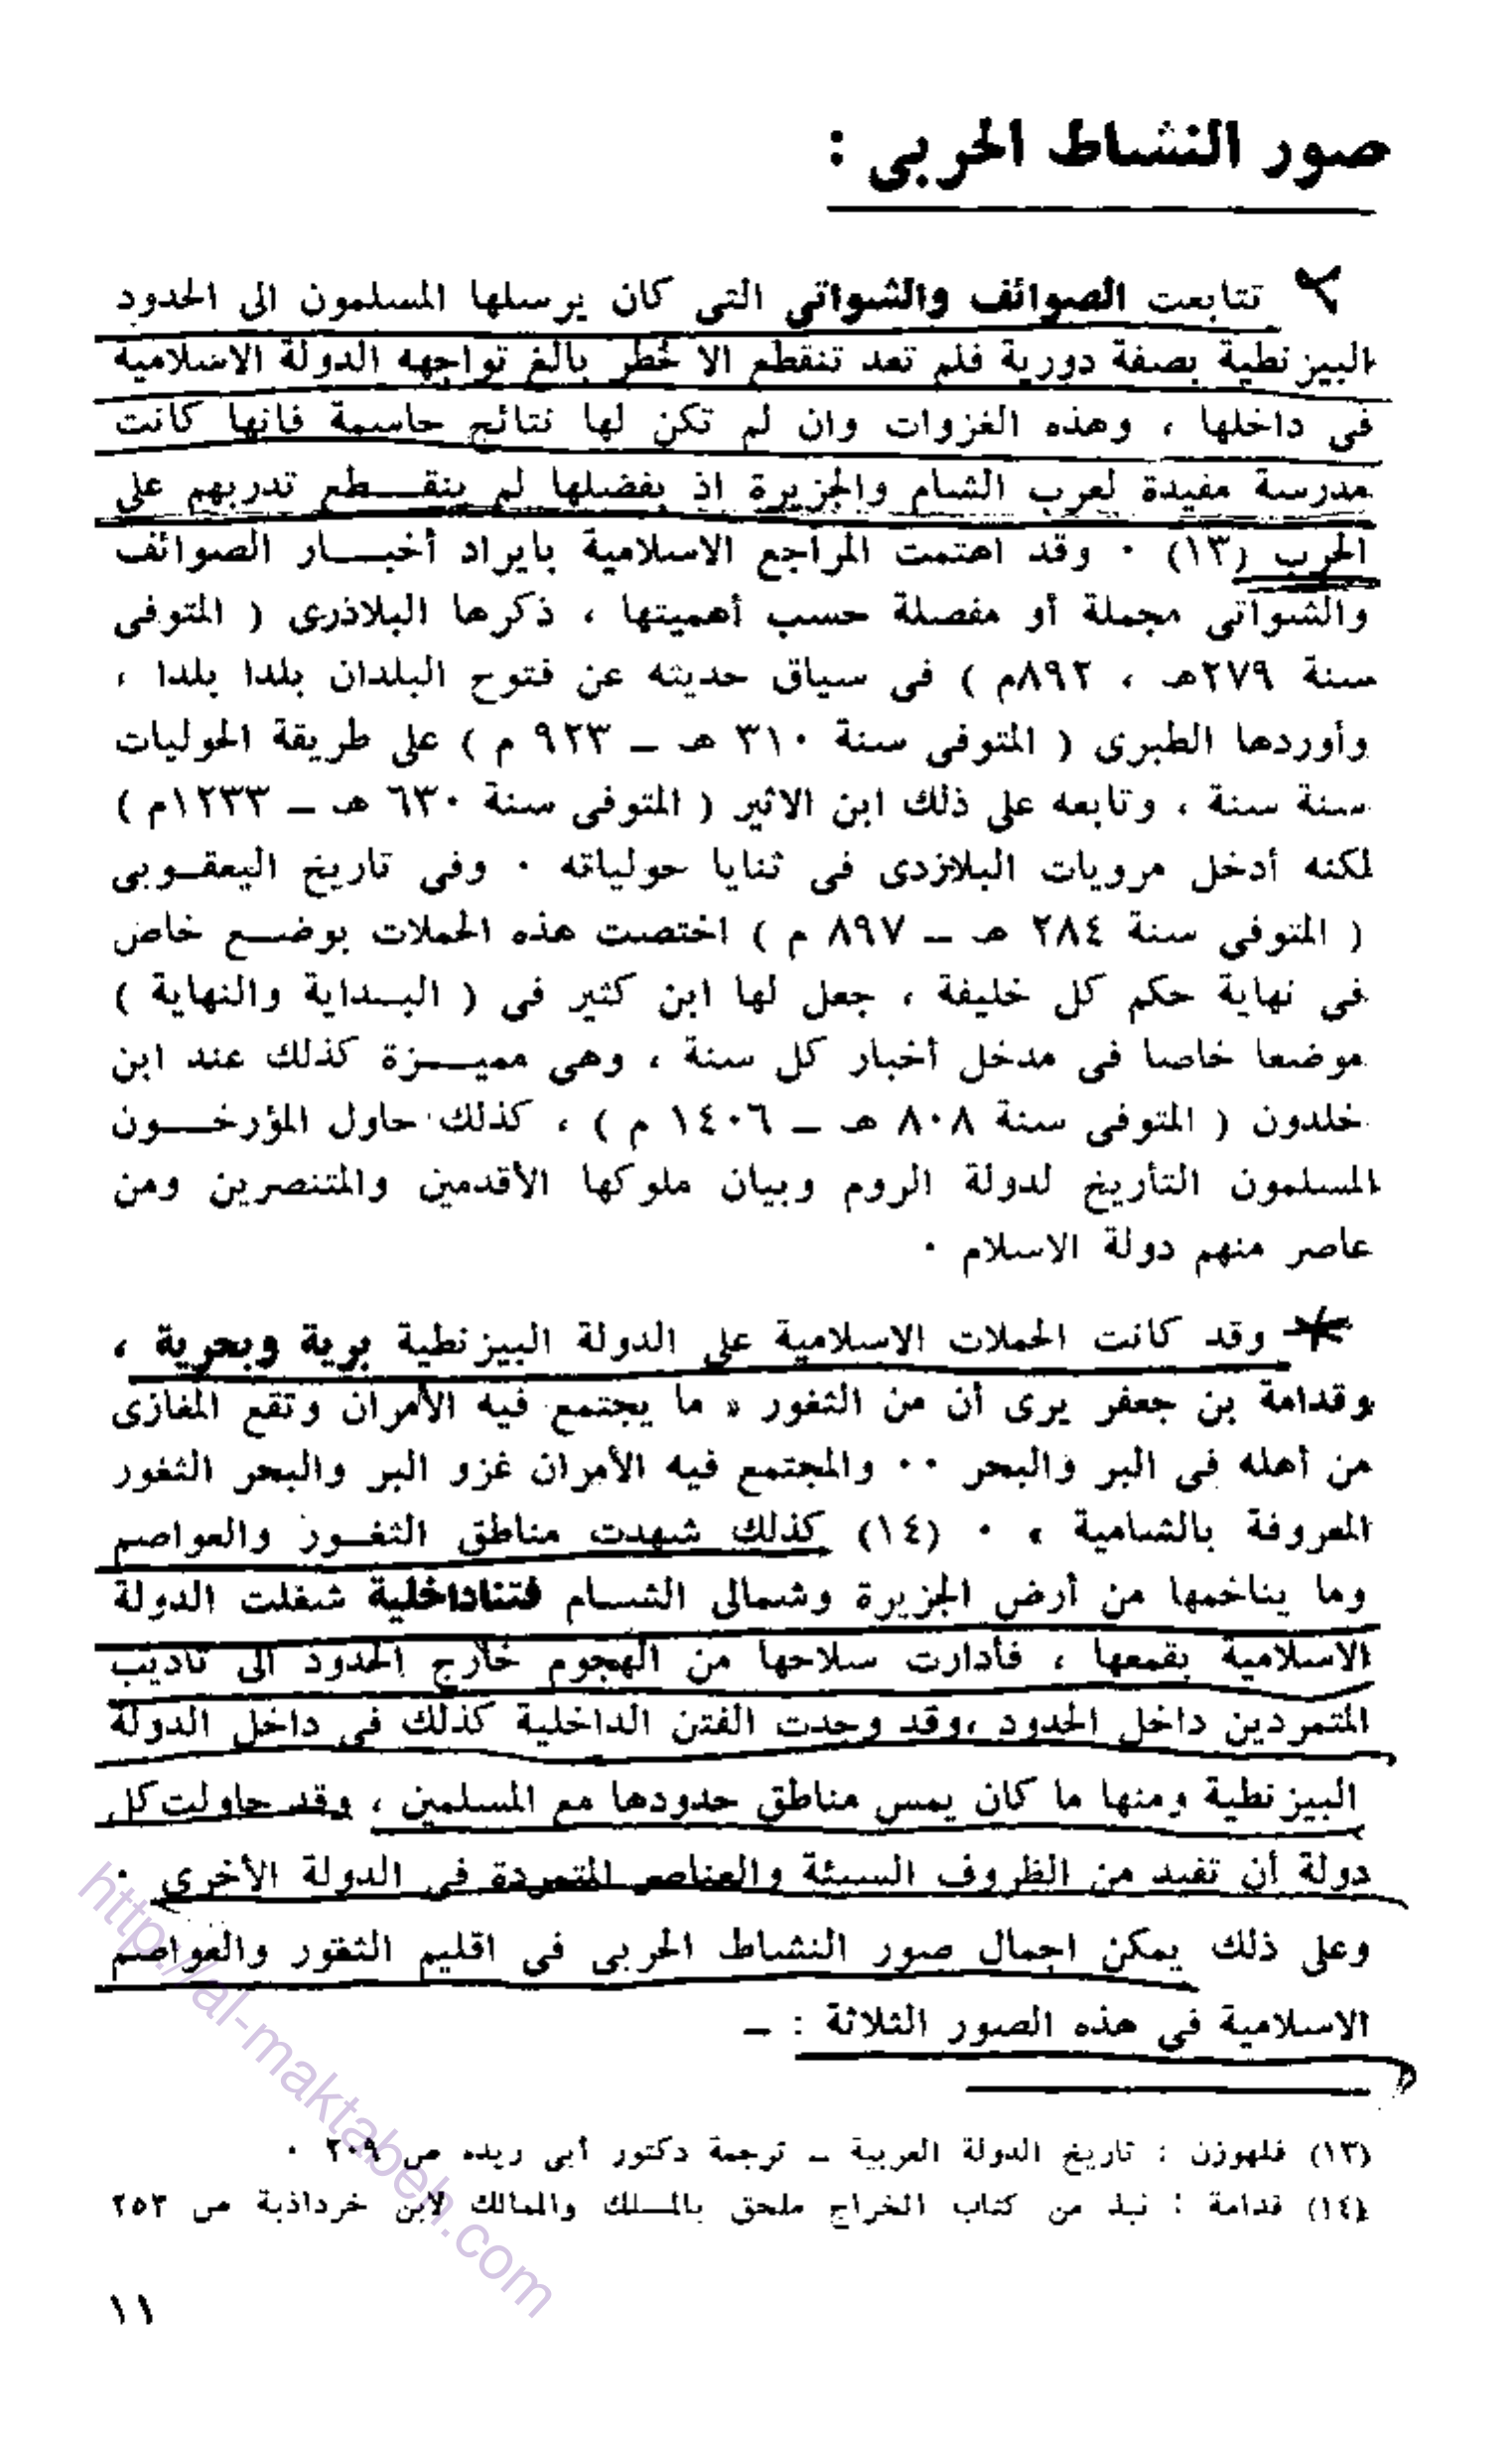 صور النشاط الحربى :
تتابعت الصوائف والشواتي التى كان يرسلها المسلمون الى الحدود
البيزنطية بصفة دورية فلم تعد تنقطع الا لخطر بالغ تواجهه الدولة الاسلامية
فى داخلها ، وهذه الغزوات وان لم تكن لها نتائج حاسمة فانها كانت
مدرسة مفيدة لعرب الشام والجزيرة اذ بفضلها لم ينقـــطع تدربهم على
الحرب (١٣) ٠ وقد اهتمت المراجع الاسلامية بايراد أخبـــار الصوائف
والشواتى مجملة أو مفصلة حسب أهميتها ، ذكرها البلاذرى ( المتوفى
سنة ٢٧٩هـ ، ٨٩٢م ) فى سياق حديثه عن فتوح البلدان بلدا بلدا ،
وأوردها الطبرى ( المتوفى سنة ٣١٠ هـ ــ ٩٢٣ م ) على طريقة الحوليات
سنة سنة ، وتابعه على ذلك ابن الاثير ( المتوفى سنة ٦٣٠ هـ ــ ١٢٣٣م )
لكنه أدخل مرويات البلازدى فى ثنايا حولياته ٠ وفى تاريخ اليعقــوبى
( المتوفى سنة ٢٨٤ هـ ــ ٨٩٧ م ) اختصت هذه الحملات بوضــع خاص
فى نهاية حكم كل خليفة ، جعل لها ابن كثير فى ( البــداية والنهاية )
موضعا خاصا فى مدخل أخبار كل سنة ، وهى مميـــزة كذلك عند ابن
خلدون ( المتوفى سنة ٨٠٨ هـ ــ ١٤٠٦ م ) ، كذلك حاول المؤرخـــون
المسلمون التأريخ لدولة الروم وبيان ملوكها الأقدمين والمتنصرين ومن
عاصر منهم دولة الاسلام ٠
وقد كانت الحملات الاسلامية على الدولة البيزنطية برية وبحرية ،
وقدامة بن جعفر يرى أن من الثغور « ما يجتمع فيه الأمران وتقع المغازى
من أهله فى البر والبحر ٠٠ والمجتمع فيه الأمران غزو البر والبحر الثغور
المعروفة بالشامية » ٠ (١٤) كذلك شهدت مناطق الثغــور والعواصم
وما يتاخمها من أرض الجزيرة وشمالى الشــام فتناداخلية شغلت الدولة
الاسلامية بقمعها ، فأدارت سلاحها من الهجوم خارج الحدود الى تأديب
المتمردين داخل الحدود ،وقد وجدت الفتن الداخلية كذلك فى داخل الدولة
البيزنطية ومنها ما كان يمس مناطق حدودها مع المسلمين ، وقد حاولت كل
دولة أن تفيد من الظروف السيئة والعناصر المتمردة فى الدولة الأخرى ٠
وعلى ذلك يمكن اجمال صور النشاط الحربى فى اقليم الثغور والعواصم
الاسلامية فى هذه الصور الثلاثة : ــ
(١٣) فلهوزن : تاريخ الدولة العربية ــ ترجمة دكتور أبى ريده ص ٢٠٩ ٠
(١٤) قدامة : نبذ من كتاب الخراج ملحق بالمسلك والممالك لابن خرداذبة ص ٢٥٣
١١
http://al-maktabeh.com